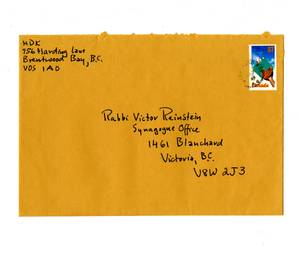 HDK
756 Harding Lane
Brentwood Bay, B.C.
V0S 1A0
Canada
Rabbi Victor Reinstein
Synagogue Office
1461 Blanchard
Victoria, B.C.
V8W 2J3